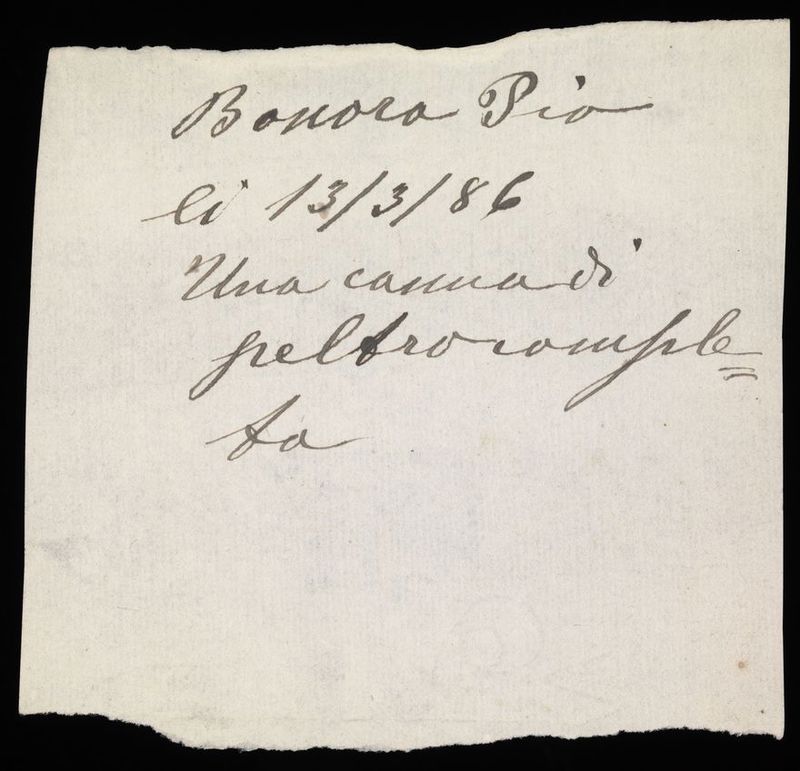 Bonora Pio
li 13/3/86
Una canna di
peltro comple=
ta